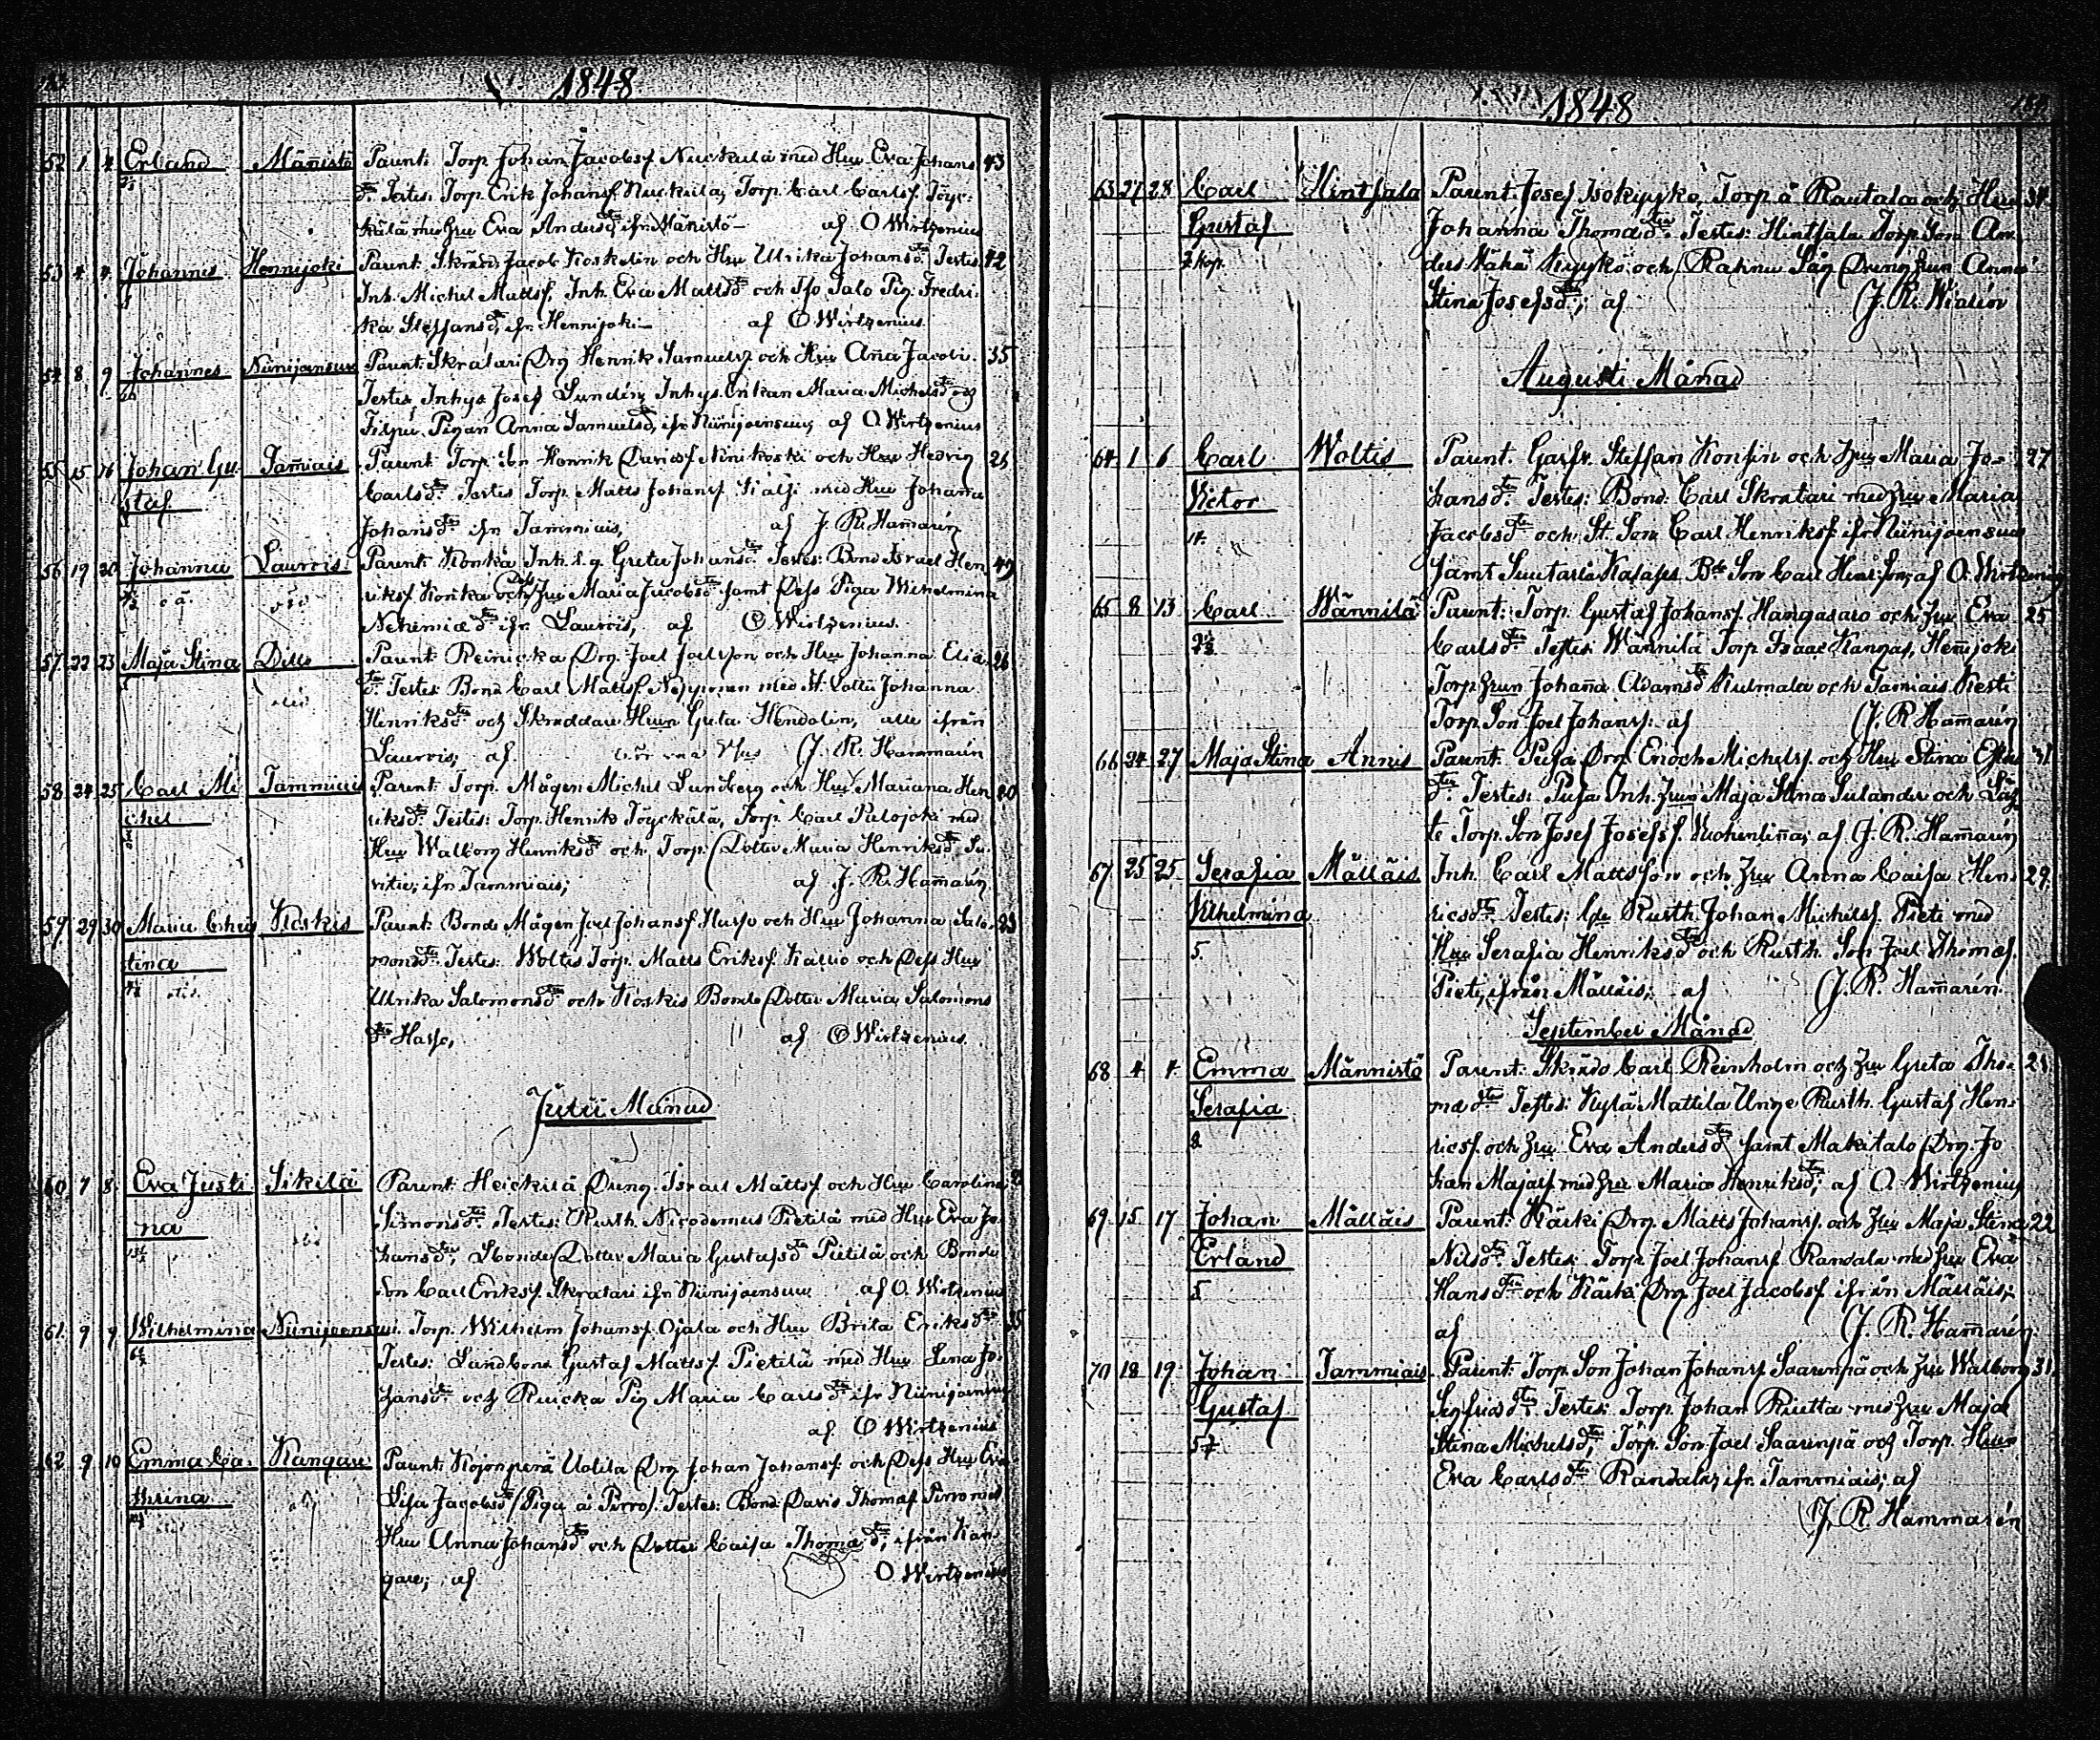 1848
52 1 2 Erland Mänistö Parent: Torp. Johan Jacobsf Nuckula med Hu Eva Johans 43
dr Testes: Torp. Erik Johansf. Nuckula, Torp. Carl Carlsf. Töyc-
kälä med Hu Eva Andersdr, ifr. Mänistö — af O Wirtzenius
53 4 4 Johannes Hennijoki Parent: Skrädd. Jacob Koskelin och Hu Ulrika Johansdr. Testes 42
Inh. Michel Mattsf, Inh. Eva Mattsdr och Iso Talo Pig. Fredri-
ka Steffansdr, ifr. Hennijoki — af O Wirtzenius
54 8 9 Johannes Niinijoensuu Parent: Skratari Drg Henrik Samuelsf och Hu Aña Jacobi. 35
Testes Inhys Josef Lundén, Inhys Enkan Maria Michelsdr och
Pigan Anna Samuelsdr, ifr Niinijoensuu, af O. Wirtzenius
55 15 16 Johan Gu- Tamiais Parent: Torp. Son Henrik Davidsf Minikoski och Hu Hedvig 25
staf. Carlsdr. Testes Torp. Matts Johansf med Hu Johaña
Johansdr ifr Tammiais, af J. R. Hamarén
56 19 20 Johanna Laurois Parent: Konka Inh. Greta Johansdr. Testes: Bond. Israel Hen 49
riksf Konka och Dess Hu Maria Jacobsdr samt Dess Piga Wilhelmina
Nehemiædr ifr. Laurois, af O Wirtzenius.
57 22 23 Maja Stina Ditto Parent: Reinicka Drg. Joel Joelsson och Hu Johanna Eliæ 26
dr. Testes Bond Carl Mattsf. Nopponen med Johanna
Henriksdr och Skräddare Hun Greta Hendolin, alle ifrån
Laurois; af J. R. Hammarén
58 24 25 Carl Mi- Tammiais Parent: Torp. Mågen Michel Lundberg och Hu Mariana Hen 20
chel riksdr. Testes: Torp. Henrik Töyckälä, Torp. Carl Palojoki med
Hu Walborg Henriksdr och Torp. Dotter Maria Henriksdr
ifr. Tammiais; af J. R. Hamarén
59 29 30 Maria Chris Koskis Parent: Bonde Mågen Joel Johansf Hasso och Hu Johanna Salo- 23
tina monsdr. Testes: Woltis Torp. Matts Eriksf. Kallio och Dess Hu
Ulrika Salomonsdr och Koskis Bonde Dotter Maria Salomons
dr Hasso, af O Wirtzenius.
Julii Månad
60 7 8 Eva Justi- Sikilä Parent: Heickilä Dreng. Israel Mattsf och Hu Carolina
na Simonsdr. Testes: Rusth. Nicodemus Pietilä med Hu Eva Jo-
hansdr, Bonde Dotter Maria Gustafsdr Pietilä och Bonde
Son Carl Eriksf. Skratari ifr Niinijoensuu af O. Wirtzenius
61 9 9 Wilhelmina Niinijoensuu. Torp. Wilhelm Johansf. Ojala och Hu Brita Eriksdr. 35
Testes: Landbond Gustaf Mattsf Pietilä med Hu Lena Jo-
hansdr och Pig Maria Carlsdr ifr Niinijoensuu
af O Wirtzenius
62 9 10 Emma Ca- Kangare Parent: Kojonperä Uotila Drg Johan Johansf. och Dess Hu Eva
thrina Lisa Jacobsdr (Piga å Pirro). Testes: Bond. David Thomasf Pirro med
Hu Anna Johansdr och Dotter Caisa Thomædr, ifrån Kan-
gare; af O Wirtzenius
1848
63 27 28 Carl Hintsala Parent. Josef Isokyykö, Torp. å Rautala och Hu 34
Gustaf Johanna Thomædr. Testes: Hintsala Torp. Son An-
2 kop. ders Wähä Kyykö och Rahnu Såg Dreng hun Anna
Stina Josefsdr; af J. R. Widén
Augusti Månad
64 1 6 Carl Woltis Parent. Garfv. Steffan Konsin och Hu Maria Jo- 27
Victor hansdr. Testes: Bond. Carl Skratari med Hu Maria
Jacobsdr och St. Son Carl Henriksf. ifr Niinijoensuu
samt Bde Son Carl Henr:son; af O. Wirtzenius
65 8 13 Carl Wännilä Parent: Torp. Gustaf Johansf. Hangasaro och Hu Eva 25
Carlsdr. Testes: Wännilä Torp Isaac Kangas, Heñijoki
Torp. Hun Johaña Adamsdr Kulmala och Tamiais Kesti
Torp. Son Joel Johansf: af J. R Hamarén
66 24 27 Maja Stina Annis Parent. Pusa Drg Enoch Michelsf. och Hu Stina 31
dr. Testes: Pusa Inh. Hun Maja Stina Sulander och
Torp. Son Josef Josefsf. Wuohenliña; af J. R. Hamarén
67 25 25 Serafia Mälläis Inh. Carl Mattsson och Hu Anna Caisa Hen- 29
Vilhelmina ricsdr. Testes: Rusth Johan Michelsf. Pieti med
5. Hu Serafia Henriksdr och Rusth. Son Joel Thomæf.
Pieti, ifrån Mälläis; af J. R. Hamarén.
September Månad
68 4 4 Emma Männistö Parent: Skrädd Carl Reinholm och Hu Greta Tho- 21
Serafia mædr. Testes: Kylä Mattila Unge Rusth. Gustaf Hen-
2 ricsf. och Hu Eva Andersdr, samt Makitalo Drg. Jo
han Majasf med Hu Maria Henriksdr; af O. Wirtzenius
69 15 17 Johan Mälläis Parent: Kärki Drg Matts Johansf. och Hu Maja Stina 22
Erland Nilsdr. Testes: Torp. Joel Johansf Randala med Hu Eva
5 Hansdr och Kärki Drg Joel Jacobsf ifrån Mälläis;
af J. R. Hamarén
70 18 19 Johan Tammiais Parent: Torp. Son Johan Johansf. Saarenpä och Hu Walborg 31
Gustaf Sigfridsdr. Testes: Torp. Johan Rietta med Hu Maja
Stina Michelsdr, Torp. Son Joel Saarenpä och Torp. Hun
Eva Carlsdr Randala, ifr. Tammiais; af
J. R Hammarén